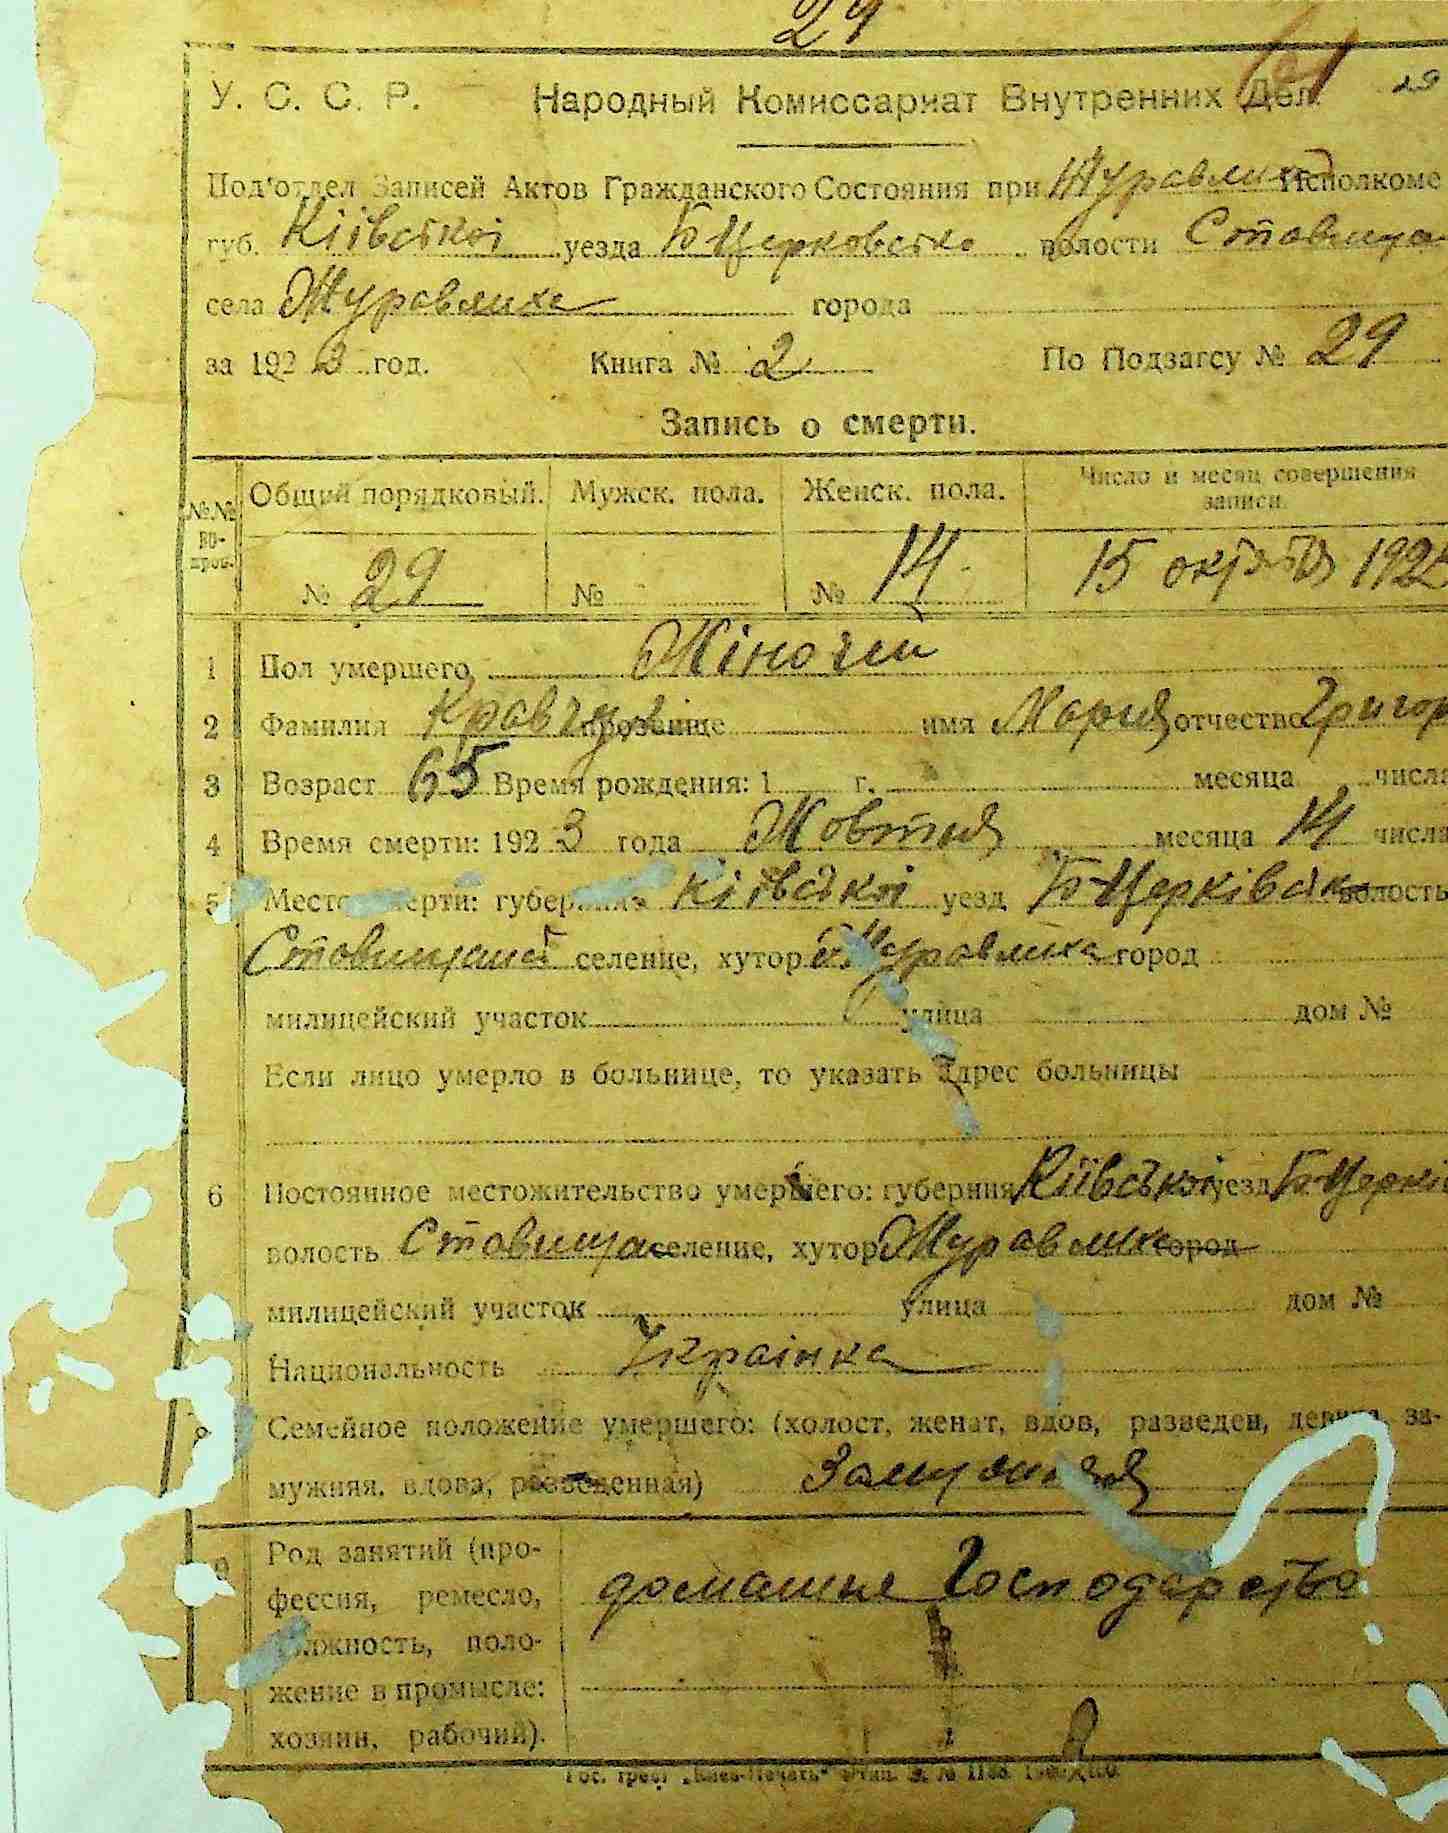 29
У. С. С. Р. Народный Комиссариат Внутренних Дел. 29
Под'отдел Записей Актов Гражданского Состояния при Журавлих Исполкоме
губ. Кіївської уезда Б Церковсько волости Ставища
села Журавлиха города
за 1923 год. Книга № 2 По Подзагсу № 29
Запись о смерти.
№№ во-прос. Общий порядковый. Мужск. пола. Женск. пола. Число и месяц совершения записи.
№ 29 № № 14 15 октября 192
1 Пол умершего Жіночей
2 Фамилия Кравчук прозвище имя Мария отчество Григор
3 Возраст 65 Время рождения: 1 г. месяца числа
4 Время смерти: 1923 года Жовтня месяца 14 числа
5 Место смерти: губерния Кіївської уезд Б Церківськ волость
Ставищанс селение, хутор с. Журавлиха город
милицейский участок улица дом №
Если лицо умерло в больнице, то указать адрес больницы
6 Постоянное местожительство умершего: губерния Кіївської уезд Б Церків
волость Ставища селение, хутор Журавлиха город
милицейский участок улица дом №
Национальность Українка
8 Семейное положение умершего: (холост, женат, вдов, разведен, девица, за-
мужняя, вдова, разведенная) Замужняя
9 Род занятий (про-
фессия, ремесло, домашне Господарство
должность, поло-
жение в промысле:
хозяин, рабочий).
Гос. трест „Киев-Печать"